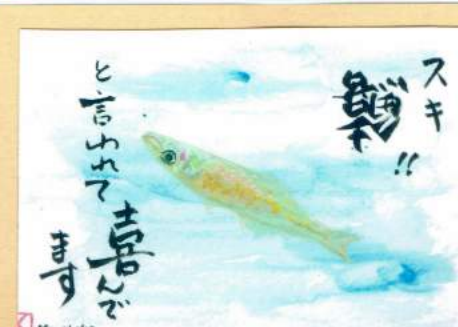 スキ
!!
と言われて
喜んで
ます